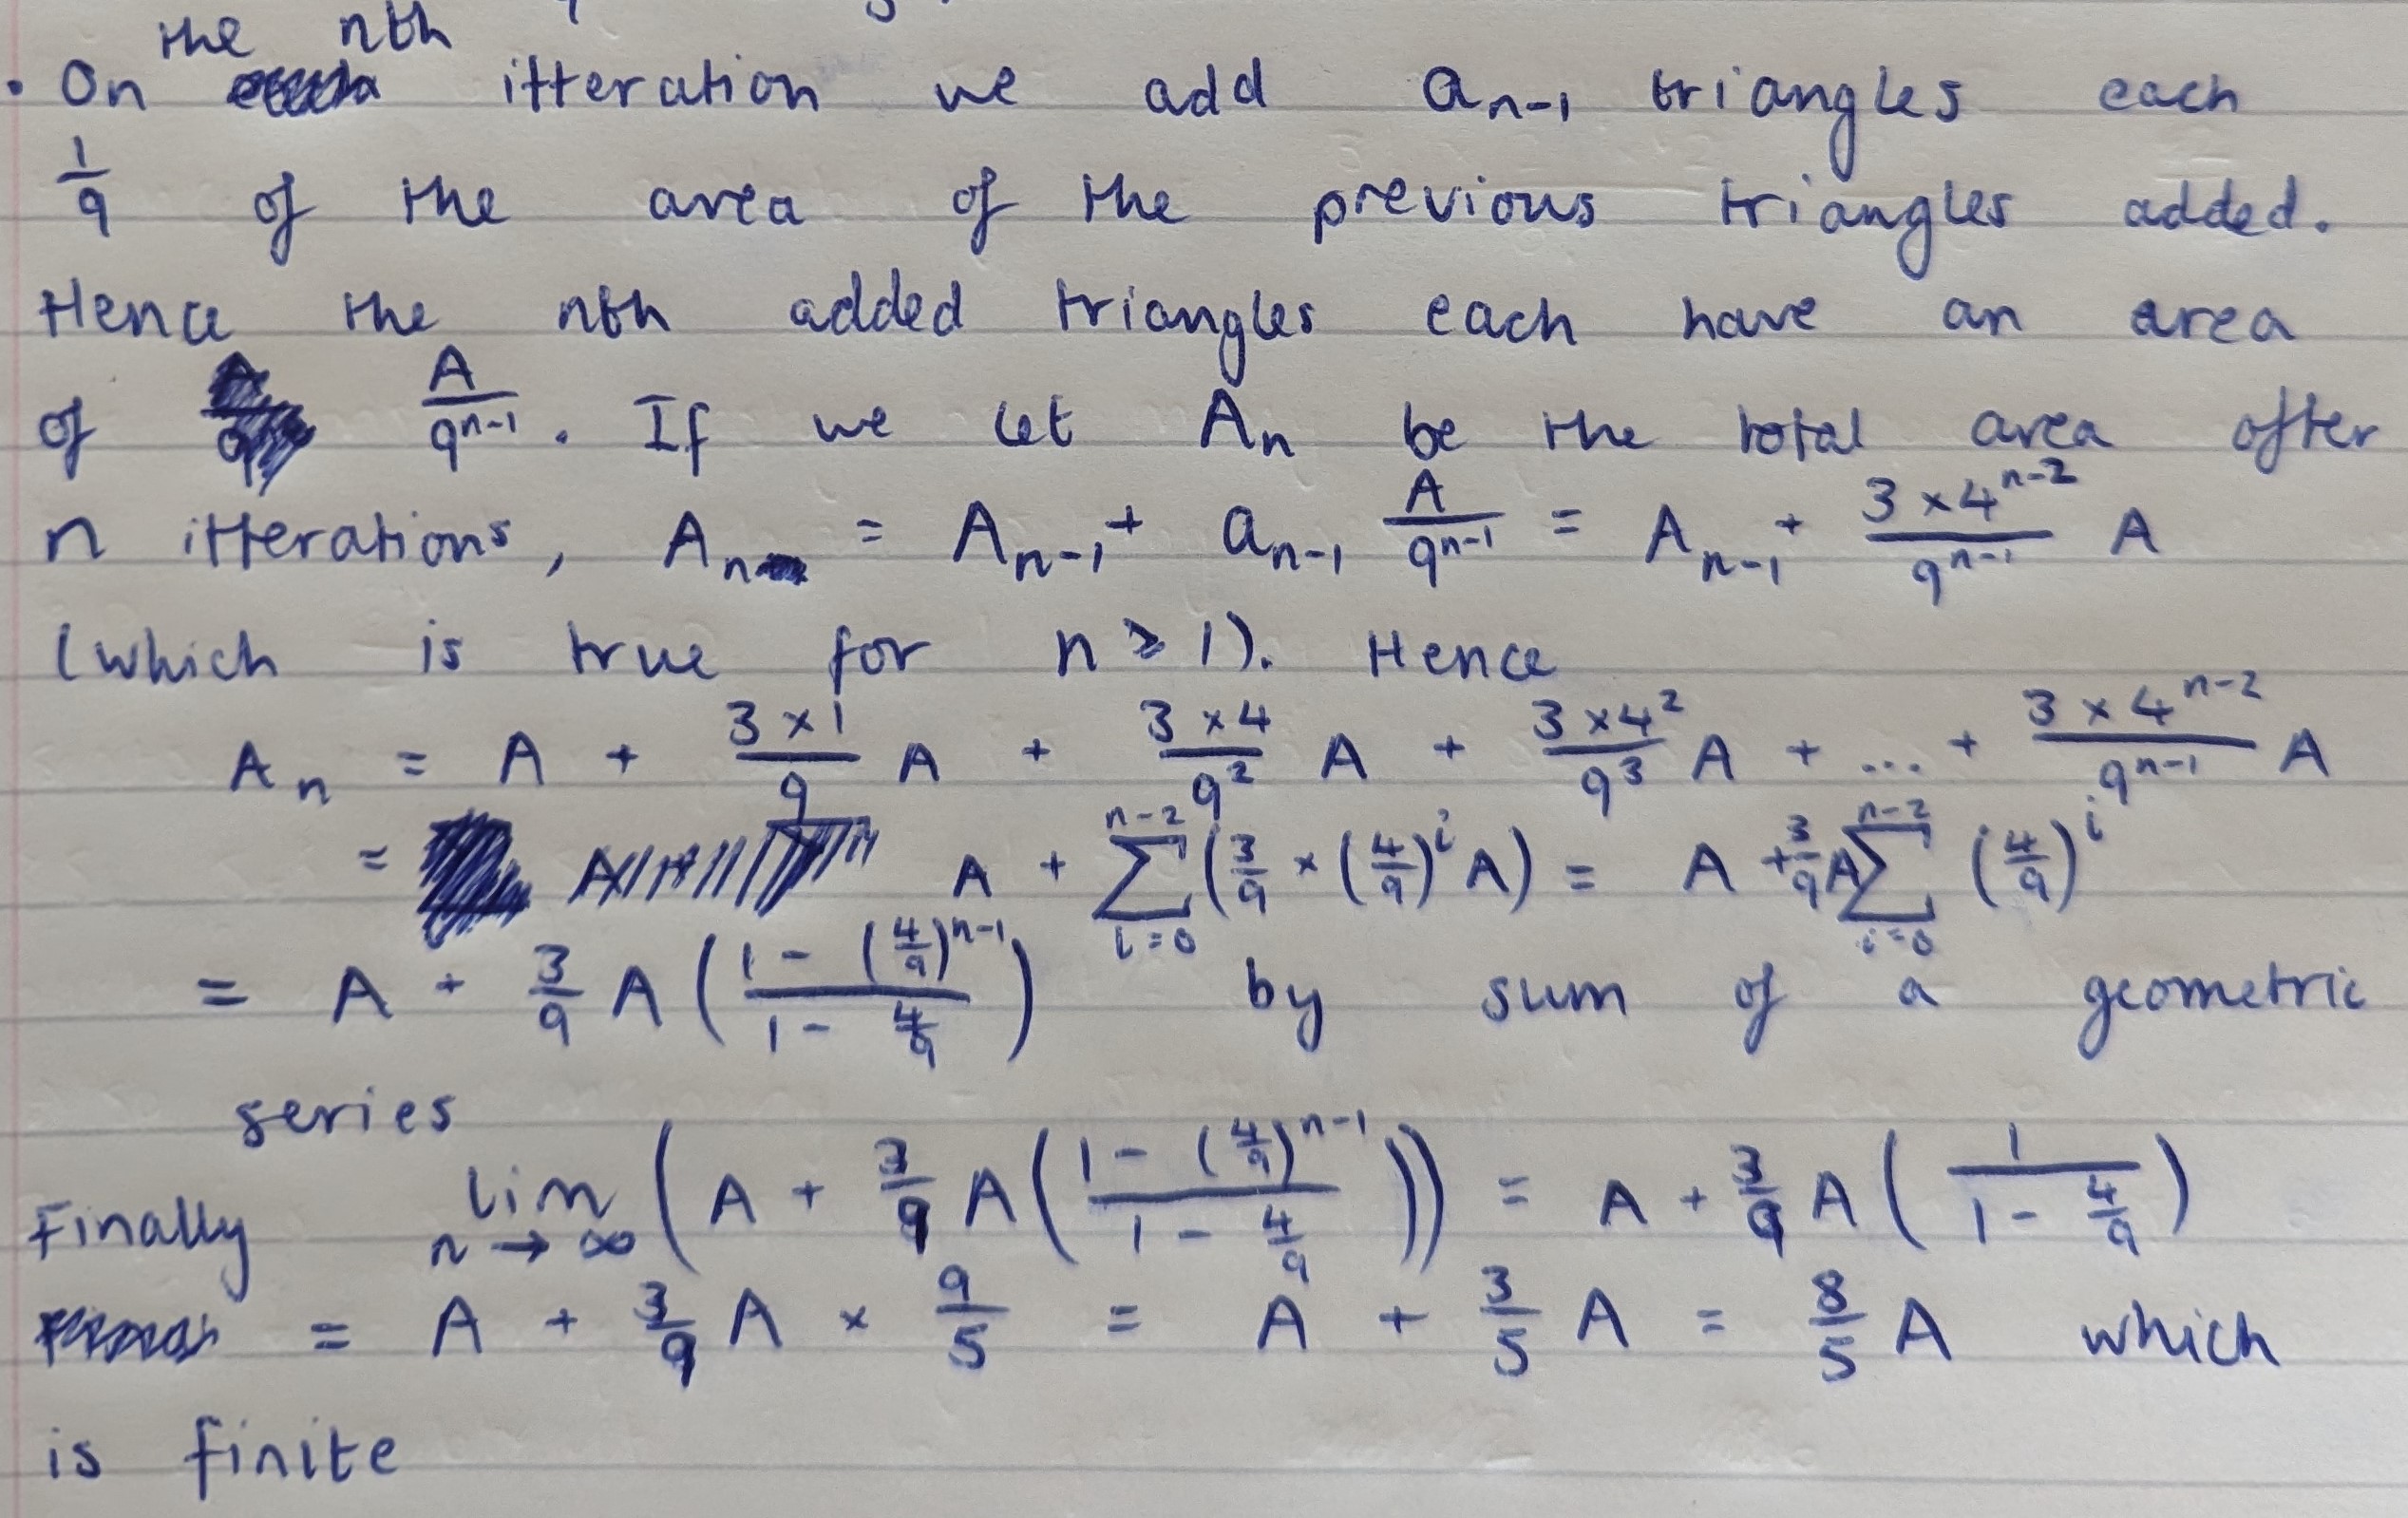 the nth
· On itteration we add aₙ₋₁ triangles each
1/9 of the area of the previous triangles added.
Hence the nth added triangles each have an area
of A/9ⁿ⁻¹. If we let Aₙ be the total area after
n itterations, Aₙ = Aₙ₋₁ + aₙ₋₁ A/9ⁿ⁻¹ = Aₙ₋₁ + (3 × 4ⁿ⁻²)/9ⁿ⁻¹ A
(which is true for n ≥ 1). Hence
Aₙ = A + (3 × 1)/9 A + (3 × 4)/9² A + (3 × 4²)/9³ A + ... + (3 × 4ⁿ⁻²)/9ⁿ⁻¹ A
= A + ∑_{i=0}^{n-2} (3/9 × (4/9)^i A) = A + 3/9 A ∑_{i=0}^{n-2} (4/9)^i
= A + 3/9 A ((1 - (4/9)ⁿ⁻¹)/(1 - 4/9)) by sum of a geometric
series
Finally lim_{n → ∞} (A + 3/9 A ((1 - (4/9)ⁿ⁻¹)/(1 - 4/9))) = A + 3/9 A (1/(1 - 4/9))
= A + 3/9 A × 9/5 = A + 3/5 A = 8/5 A which
is finite